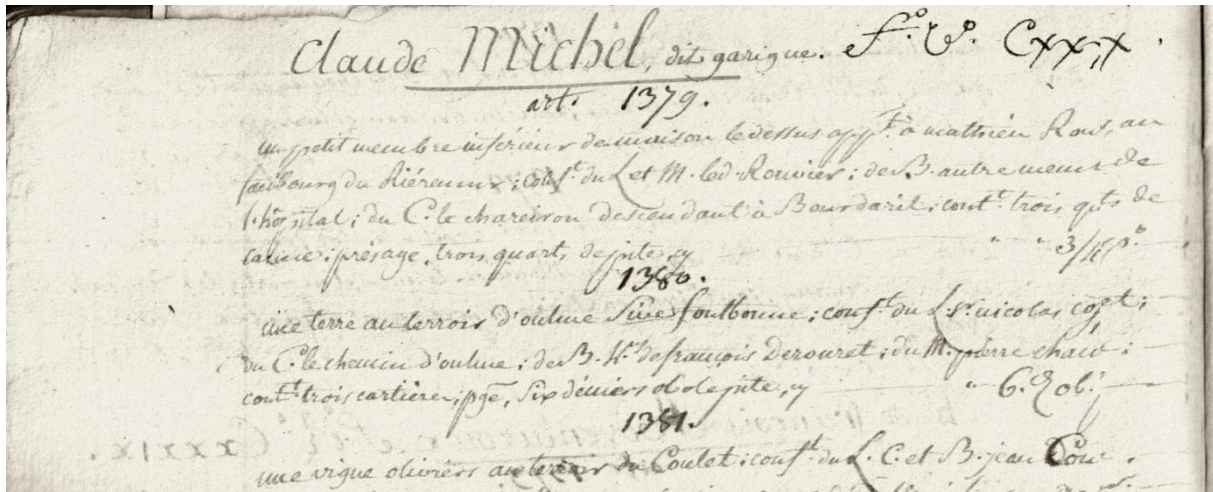 Claude Michel, dit garigue. F.º V.º Cxxix.
art. 1379.
un petit membre inférieur de maison le dessus app.t à mathieu Roux, au
faubourg du ; conf.t du L et M. led. Rouvier ; de B. autre membre de
l'hôpital ; du C. le chareiron descendant à Bourdaril ; cont.t trois q.ts de
canne ; présage, trois quarts de pite, y " " 3/4 p.e
1380.
une terre au terroir d'oulme Sive fontbonne ; conf.t du L. S.r nicolas ;
du C. le chemin d'oulme ; de B. h.rs de françois Derouret ; du M. pierre ;
cont.t trois cartières, pgé, Six déniers obole pite, y " 6. ob.
1381.
une vigne oliviers au terroir du Coulet ; conf.t du L. C. et B. jean